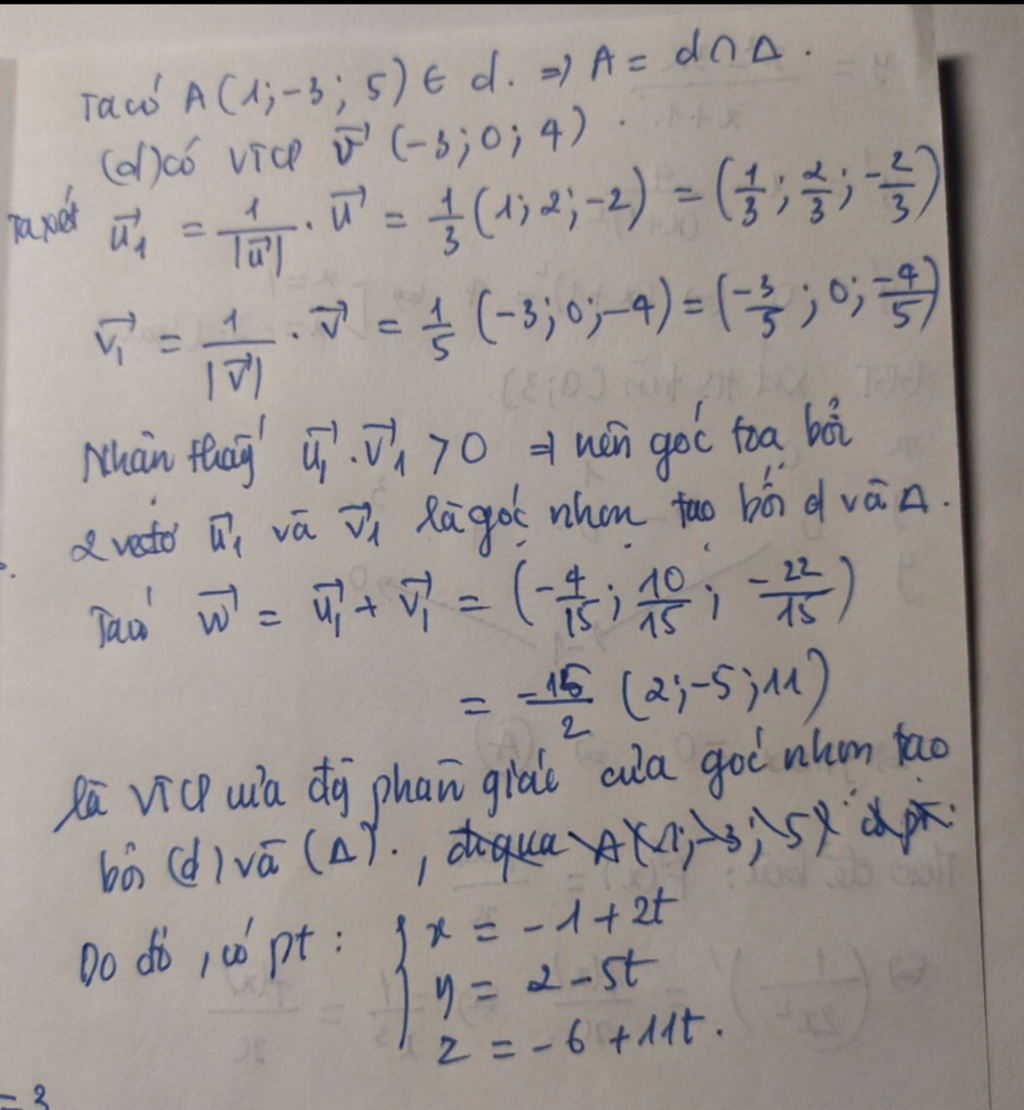 Ta có A(1;-3;5) ∈ d. ⇒ A = d∩Δ.
(d) có VTCP v⃗ (-3;0;4).
Ta xét u⃗₁ = 1/|u⃗| . u⃗ = 1/3 (1;2;-2) = (1/3; 2/3; -2/3)
v⃗₁ = 1/|v⃗| . v⃗ = 1/5 (-3;0;-4) = (-3/5; 0; -4/5)
Nhận thấy u⃗₁.v⃗₁ > 0 ⇒ nên góc tọa bởi
2 vectơ u⃗₁ và v⃗₁ là góc nhọn tạo bởi d và Δ.
Ta có w⃗ = u⃗₁ + v⃗₁ = (-4/15; 10/15; -22/15)
= -15/2 (2;-5;11)
là VTCP của đg phân giác của góc nhọn tạo
bởi (d) và (Δ)., đi qua A(1;-3;5)
Do đó, có pt: { x = -1+2t
y = 2-5t
z = -6+11t.
= 3